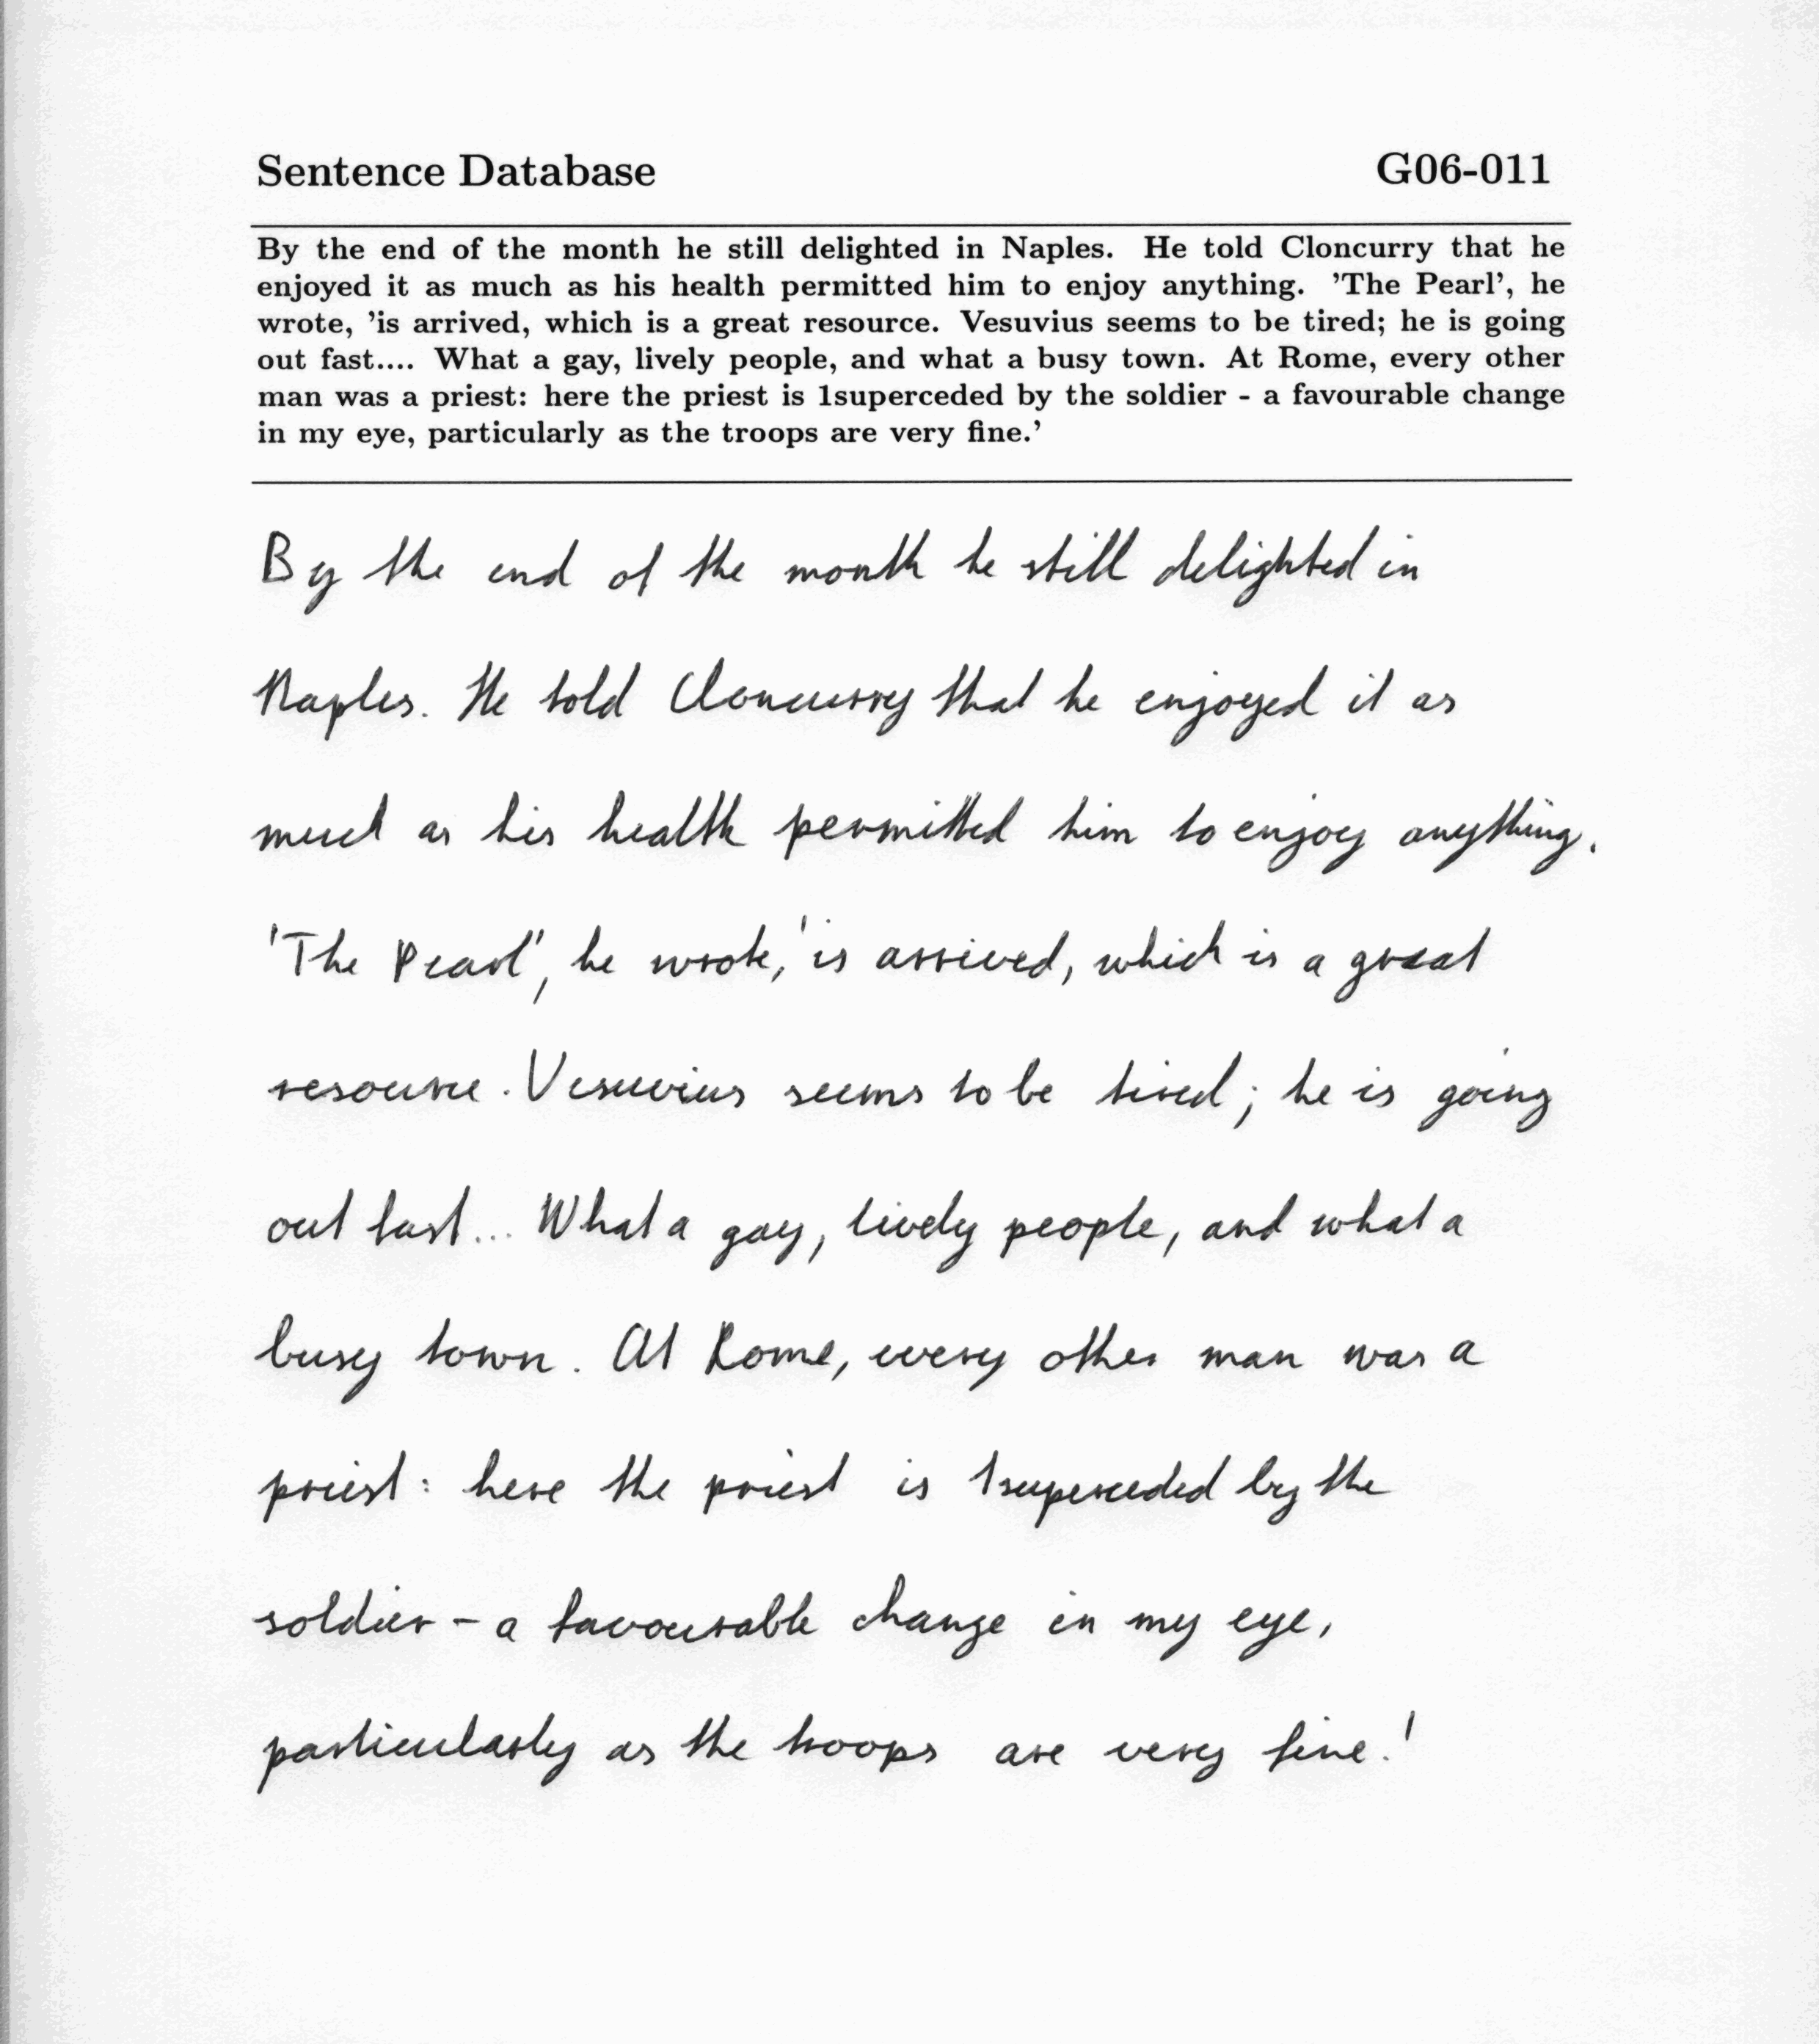 Sentence Database G06-011
By the end of the month he still delighted in Naples. He told Cloncurry that he
enjoyed it as much as his health permitted him to enjoy anything. 'The Pearl', he
wrote, 'is arrived, which is a great resource. Vesuvius seems to be tired; he is going
out fast.... What a gay, lively people, and what a busy town. At Rome, every other
man was a priest: here the priest is 1superceded by the soldier - a favourable change
in my eye, particularly as the troops are very fine.'
By the end of the month he still delighted in
Naples. He told Cloncurry that he enjoyed it as
much as his health permitted him to enjoy anything.
'The Pearl', he wrote, 'is arrived, which is a great
resource. Vesuvius seems to be tired; he is going
out fast... What a gay, lively people, and what a
busy town. At Rome, every other man was a
priest: here the priest is 1superceded by the
soldier - a favourable change in my eye,
particularly as the troops are very fine.'